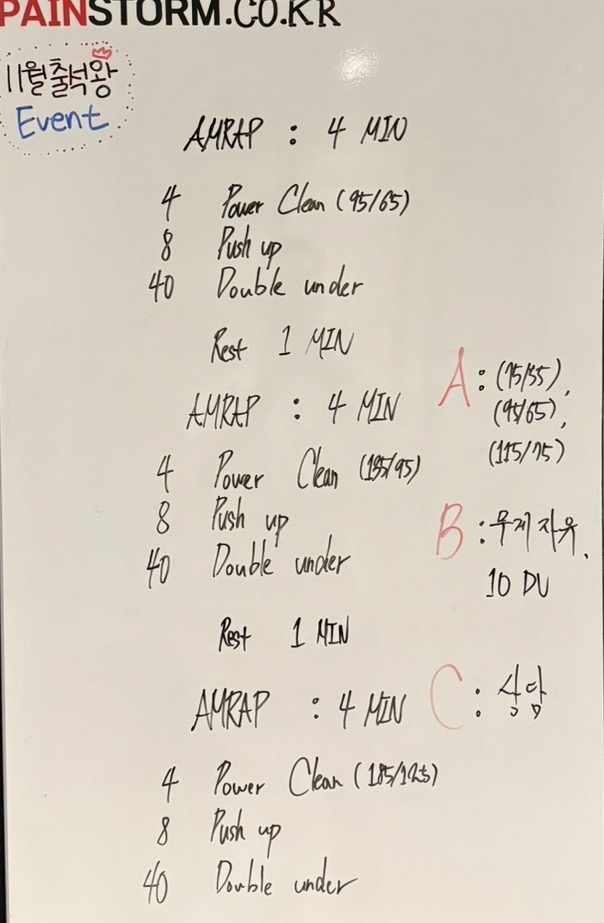 PAINSTORM.CO.KR
11월 출석왕
Event
AMRAP : 4 MIN
4 Power Clean (95/65)
8 Push up
40 Double under
Rest 1 MIN
AMRAP : 4 MIN
4 Power Clean (135/95)
8 Push up
40 Double under
Rest 1 MIN
AMRAP : 4 MIN
4 Power Clean (185/125)
8 Push up
40 Double under
A : (75/55),
(95/65),
(115/75)
B : 무게 자유.
10 DU
C : 상담